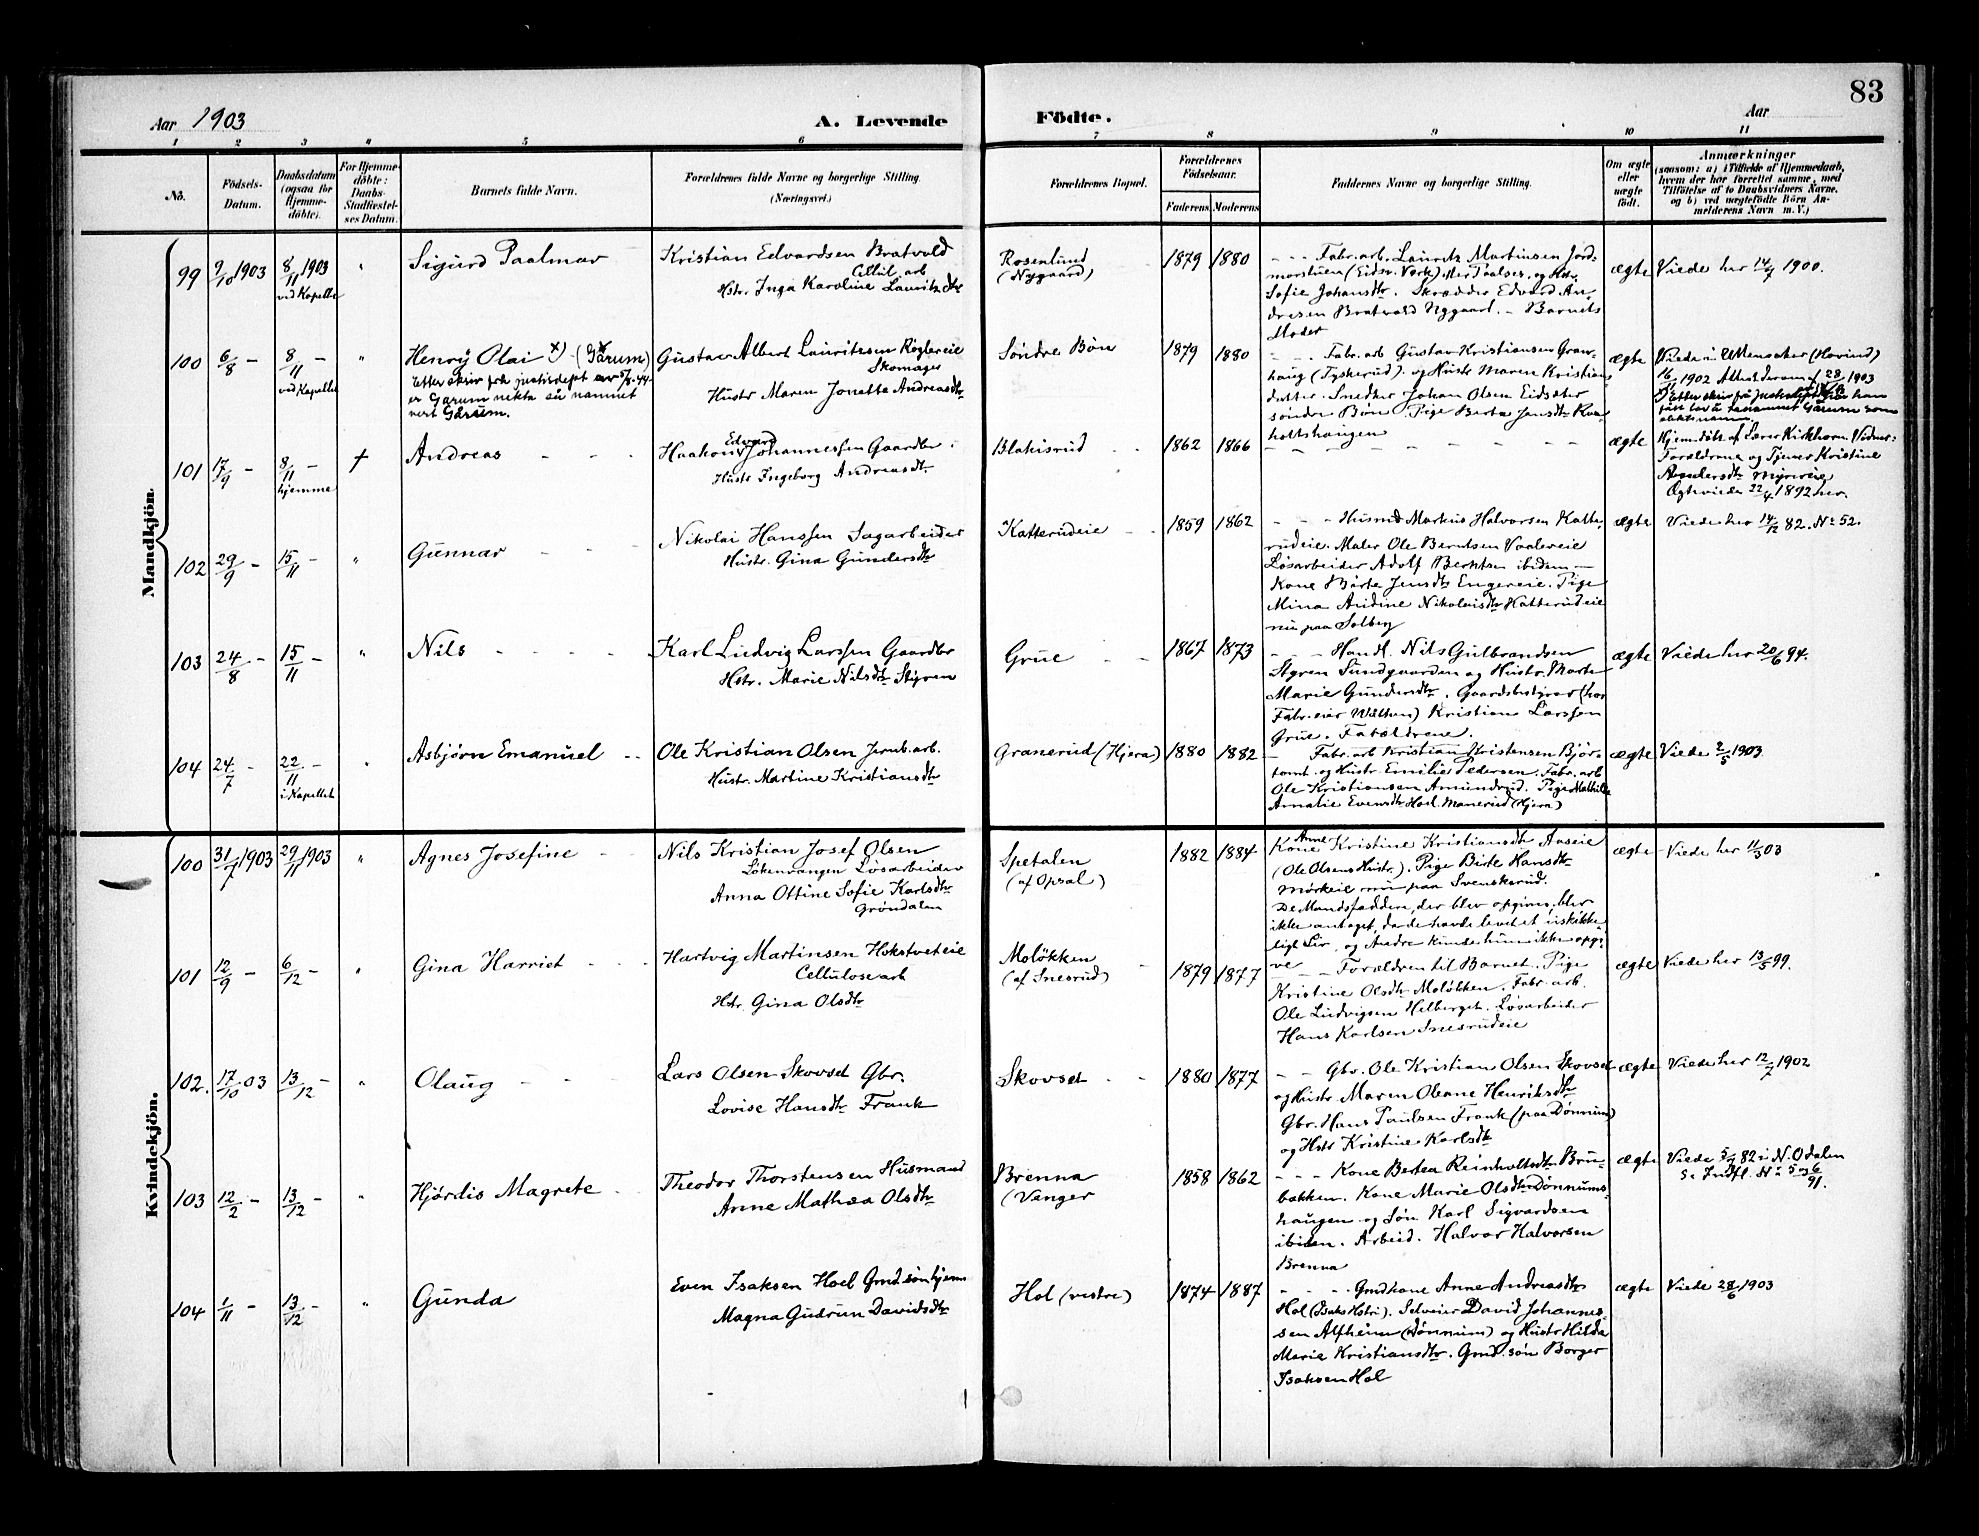 83
Aar 1903
A. Levende
Födte.
Aar
1 2 3 4 5 6 7 8 9 10 11
No.
Födsels-
Datum.
Daabsdatum
(ogsaa for
Hjemme-
döbte).
For Hjemme-
döbte:
Daabs-
Stadfæstel-
ses Datum.
Barnets fulde Navn.
Forældrenes fulde Navne og borgerlige Stilling.
(Næringsvei.)
Forældrenes Bopæl.
Forældrenes
Födselsaar.
Faderens Moderens
Faddernes Navne og borgerlige Stilling.
Om ægte
eller
uægte
födt.
Anmærkninger
(saasom: a) i Tilfælde af Hjemmedaab,
hvem der har forrettet samme, med
Tilföielse af to Daabsvidners Navne,
og b) ved uægtefödte Börn An-
melderens Navn m. V.)
Mandkjön.
99 9/10 1903 8/11 1903
ved Kapellet
Sigurd Paalmar
Kristian Edvardsen Bratvold
Cellul. arb
Hstr. Inga Karoline Lauritzdtr
Rosenlund
(Nygaard)
1879 1880
Fabr. arb. Lauritz Martinsen Jord-
morstuen (Eidsv. Værk)
Sofie Johansdtr. Skrædder Edvard An-
dresen Bratvold Nygaard. - Barnets
Moder
ægte
Viede her 14/7 1900.
100 6/8 - 8/11 -
ved Kapellet
Henry Olai x) (Gårum)
Etter skriv frå justisdept av 5/8-44
er Garum nekta så namnet
vert Gårum.
Gustav Albert Lauritzsen Røglereie
Skomager
Hustr Maren Jonette Andreasdtr
Søndre Bøn
1879 1880
Fabr. arb Gustav Kristiansen Gran-
haug (Tyskerud). og Hustr Maren Kristians
datter. Snedker Johan Olsen Eidsæter
søndre Bøn. Pige Berta Jensdtr Kva
holtshaugen
ægte
Viede i Ullensaker (Hovind)
16/11 1902 28/11 1903
101 17/9 - 8/11 -
hjemme
†
Andreas
Haakon Edvard Johannessen Gaardbr
Hustr Ingeborg Andreasdtr
Blakisrud
1862 1866
ægte
Hjemdøbt af Lærer Kirkhorn. Vidner:
Forældrene og Tjener Kristine
Ægteviede 22/4 1892 her.
102 29/9 - 15/11 -
Gunnar
Nikolai Hanssen Sagarbeider
Hustr. Gina Gundersdtr
Katterudeie
1859 1862
Husmd Markus Halvorsen Katte-
rudeie. Maler Ole Berntsen Vaalereie
Løsarbeider Adolf Berntsen ibidem -
Kone Børte Jensdtr Engereie. Pige
Mina Andine Nikolaisdtr Katterudeie
nu paa Solberg
ægte
Viede her 14/12 82. No 52.
103 24/8 - 15/11 -
Nils
Karl Ludvig Larssen Gaardbr
Hstr. Marie Nilsdtr Styren
Grue
1867 1873
Handl. Nils Gulbrandsen
Styren Sundgaarden og Hustr. Marte
Marie Gundersdtr. Gaardsbestyrer (hos
Fabr. eier Wathne) Kristian Larssen
Grue. Forældrene.
ægte
Viede her 20/6 94.
104 24/7 - 22/11 -
i Kapellet
Asbjørn Emanuel
Ole Kristian Olsen Jernb. arb.
Hustr. Martine Kristiansdtr
Granerud (Hjera)
1880 1882
Fabr. arb Kristian Kristensen Bjør-
tomt. og Hustr Emilie Pedersen. Fabr. arb
Ole Kristiansen Amundrud. Pige Mathilde
Amalie Evensdtr Hoel Manerud (Hjera)
ægte
Viede 2/5 1903
Kvindekjön.
100 31/7 1903 29/11 1903
Agnes Josefine
Nils Kristian Josef Olsen
Løkenvangen Løsarbeider
Anna Ottine Sofie Karlsdtr
Grøndalen
Spetalen
(af Opsal)
1882 1884
Kone Anne Kristine Kristiansdtr Aaseie
(Ole Olsens Hustr.). Pige Birte Hansdtr
Mørkeie nu paa Svenskerud.
De Mandsfaddere, der blev opgivne, blev
ikke antaget, da de havde levet et uskikke-
ligt Liv, og Andre kunde hun ikke opgi-
ve
ægte
Viede her 11/3 03
101 12/9 - 6/12 -
Gina Harriet
Hartvig Martinsen Hokstveteie
Cellulosearb
Hstr. Gina Olsdtr
Moløkken
(af Snesrud)
1879 1877
Forældre til Barnet. Pige
Kristine Olsdtr Moløkken. Fabr. arb.
Ole Ludvigsen Helberget. Løsarbeider
Hans Karlsen Snesrudeie
ægte
Viede her 13/5 99.
102. 17/10 03 13/12 -
Olaug
Lars Olsen Skovset Gbr.
Lovise Hansdtr Frank
Skovset
1880 1877
Gbr. Ole Kristian Olsen Skovset
og Hustr. Maren Oleane Henriksdtr
Gbr. Hans Paulsen Frank (paa Dønnum)
og Hstr Kristine Karlsdtr
ægte
Viede her 12/7 1902
103 12/2 - 13/12 -
Hjørdis Magrete
Theodor Thorstensen Husmand
Anne Mathea Olsdtr
Brenna
(Vanger
1858 1862
Kone Bertea Reinholtsdtr Bru-
bakken. Kone Marie Olsdtr Dønnums-
haugen og Søn Karl Sigvardsen
ibiden. Arbeid. Halvor Halvorsen
Brenna
ægte
Viede 82 i N. Odalen
Se Indfl. No 5 og 6
91.
104 1/11 - 13/12 -
Gunda
Even Isaksen Hoel Gmd. søn hjem
Magna Gudrun Davidsdtr
Hol (vestre)
1874 1887
Gmdkone Anne Andreasdtr
Hol (Isaks Hstr.). Selveier David Johannes-
sen Alfheim (Dønnum) og Hustr Hilda
Marie Kristiansdtr. Gmd. søn Borger
Isaksen Hol
ægte
Viede 28/6 1903